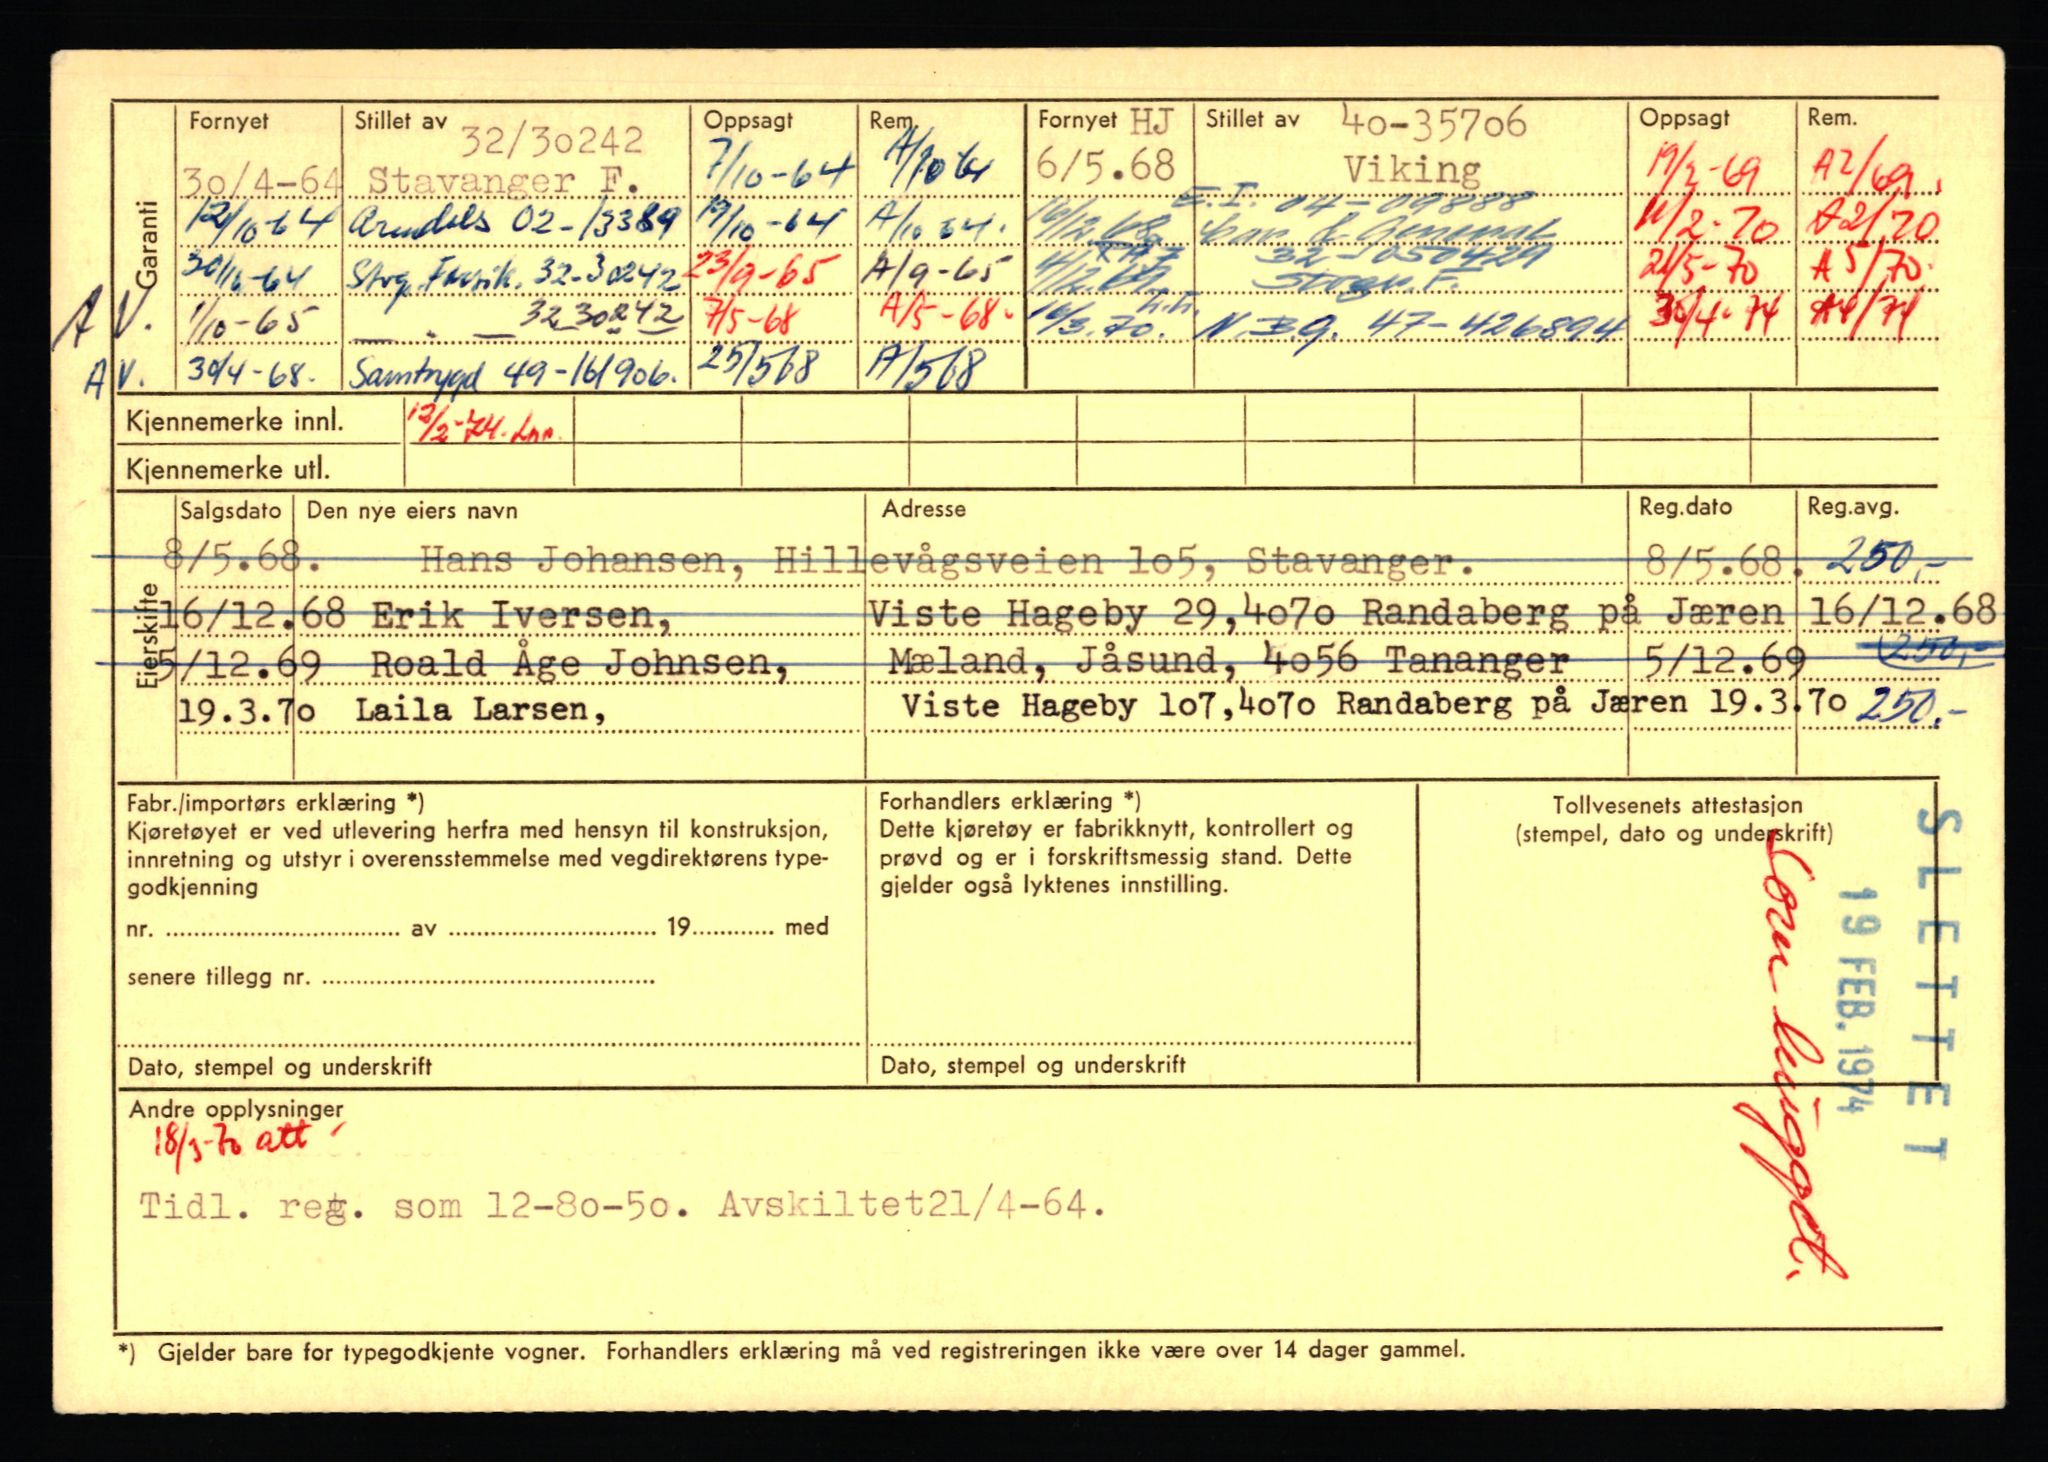 Garanti
Fornyet Stillet av Oppsagt Rem. Fornyet HJ Stillet av 40-35706 Oppsagt Rem.
32/30242
30/4-64 Stavanger F. 7/10-64 A/10 64 6/5.68 Viking 19/2-69 A2/69.
E.I. 04-09888
12/10-64 Arendals 02-13389 19/10-64 A/10 64. 16/12 68 11/2-70 A2/70
32-050429
30/10-64 Stvg. 32-30242 23/9-65 A/9-65 Stvgr. F. 21/5-70 A5/70.
A V. 1/10-65 — " — 32 30242 7/5-68 A/5-68. 16/3.70. N.B.g. 47-426894 30/4-74 A4/74
A V. 30/4-68. Samtrygd 49-161906. 25/568 A/568
Kjennemerke innl. 12/2-74.
Kjennemerke utl.
Eierskifte
Salgsdato Den nye eiers navn Adresse Reg.dato Reg.avg.
8/5.68. Hans Johansen, Hillevågsveien 1o5, Stavanger. 8/5.68. 250,-
16/12.68 Erik Iversen, Viste Hageby 29,4o7o Randaberg på Jæren 16/12.68
5/12.69 Roald Åge Johnsen, Mæland, Jåsund, 4o56 Tananger 5/12.69 250,-
19.3.7o Laila Larsen, Viste Hageby 1o7,4o7o Randaberg på Jæren 19.3.7o 250.-
Fabr./importørs erklæring *)
Kjøretøyet er ved utlevering herfra med hensyn til konstruksjon,
innretning og utstyr i overensstemmelse med vegdirektørens type-
godkjenning
nr. ........ av ........ 19........ med
senere tillegg nr. ........
Dato, stempel og underskrift
Forhandlers erklæring *)
Dette kjøretøy er fabrikknytt, kontrollert og
prøvd og er i forskriftsmessig stand. Dette
gjelder også lyktenes innstilling.
Dato, stempel og underskrift
Tollvesenets attestasjon
(stempel, dato og underskrift)
SLETTET
19 FEB. 1974
Andre opplysninger
18/3-70 att
Tidl. reg. som 12-8o-5o. Avskiltet21/4-64.
*) Gjelder bare for typegodkjente vogner. Forhandlers erklæring må ved registreringen ikke være over 14 dager gammel.